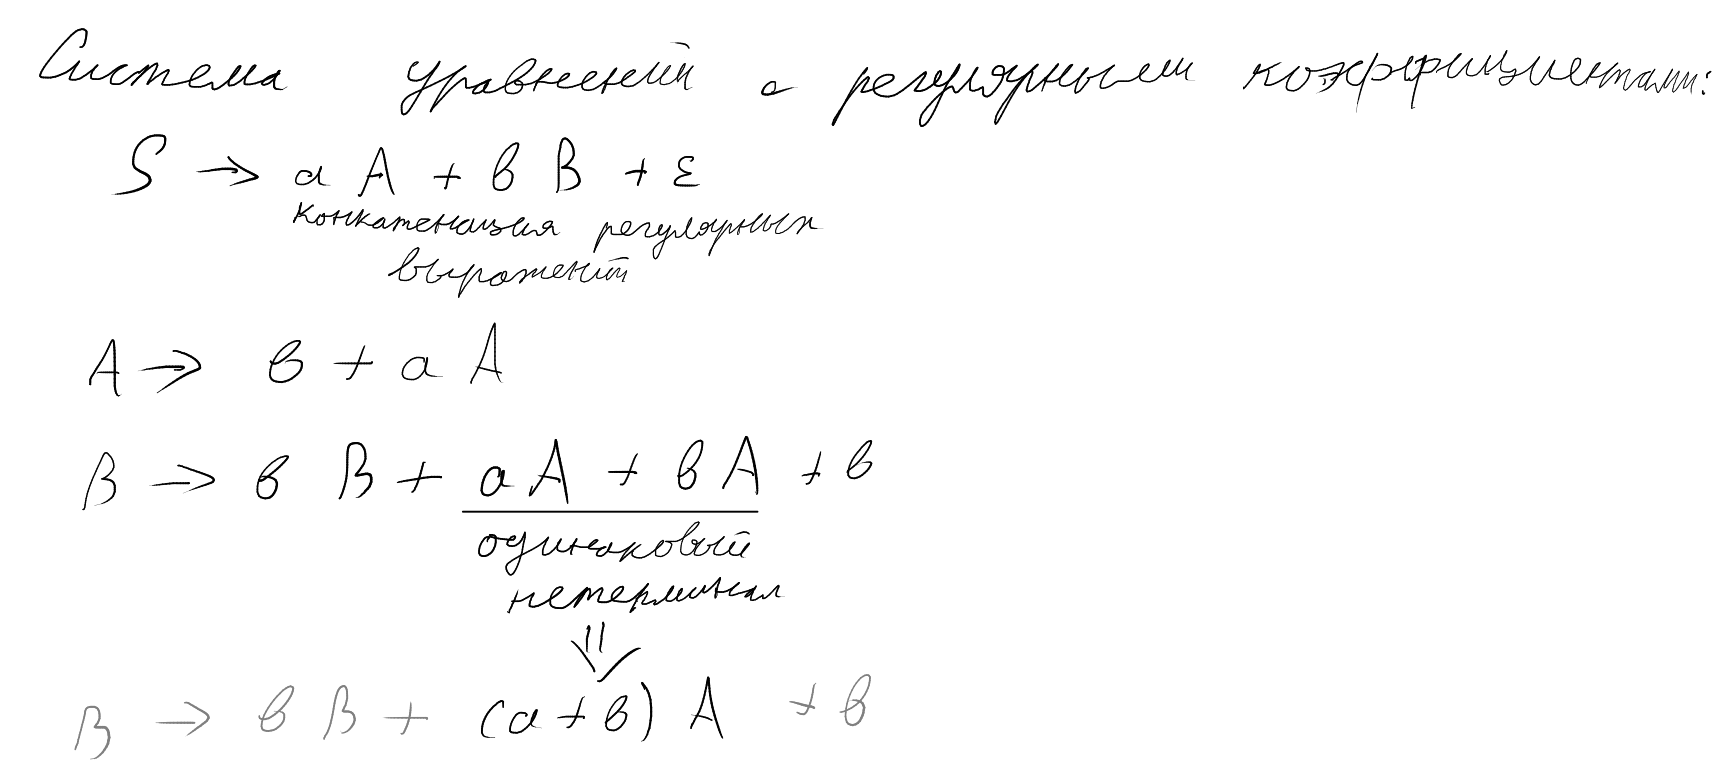 Система уравнений с регулярными коэффициентами:
S → a A + b B + ε
конкатенация регулярных
выражений
A → b + a A
B → b B + a A + b A + b
одинаковый
нетерминал
⇓
B → b B + (a + b) A + b